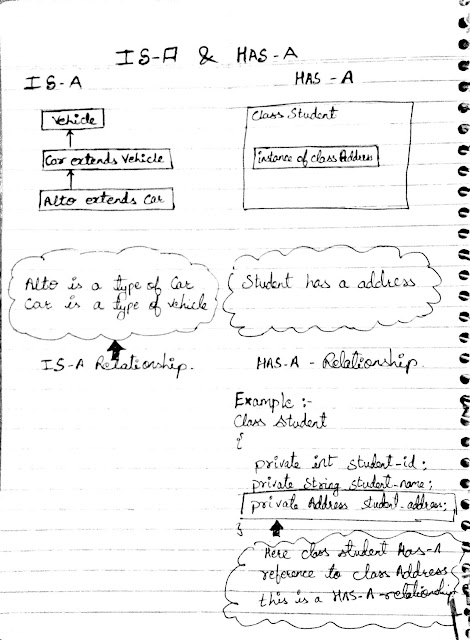 IS-A & HAS-A
IS-A
Vehicle
Car extends Vehicle
Alto extends Car
Alto is a type of Car
Car is a type of Vehicle
IS-A Relationship.
HAS-A
Class Student
instance of class Address
Student has a address
HAS-A - Relationship.
Example :-
Class Student
{
private int student-id;
private String student-name;
private Address student-address;
}
Here class student Has-A
reference to class Address
this is a HAS-A-relationship